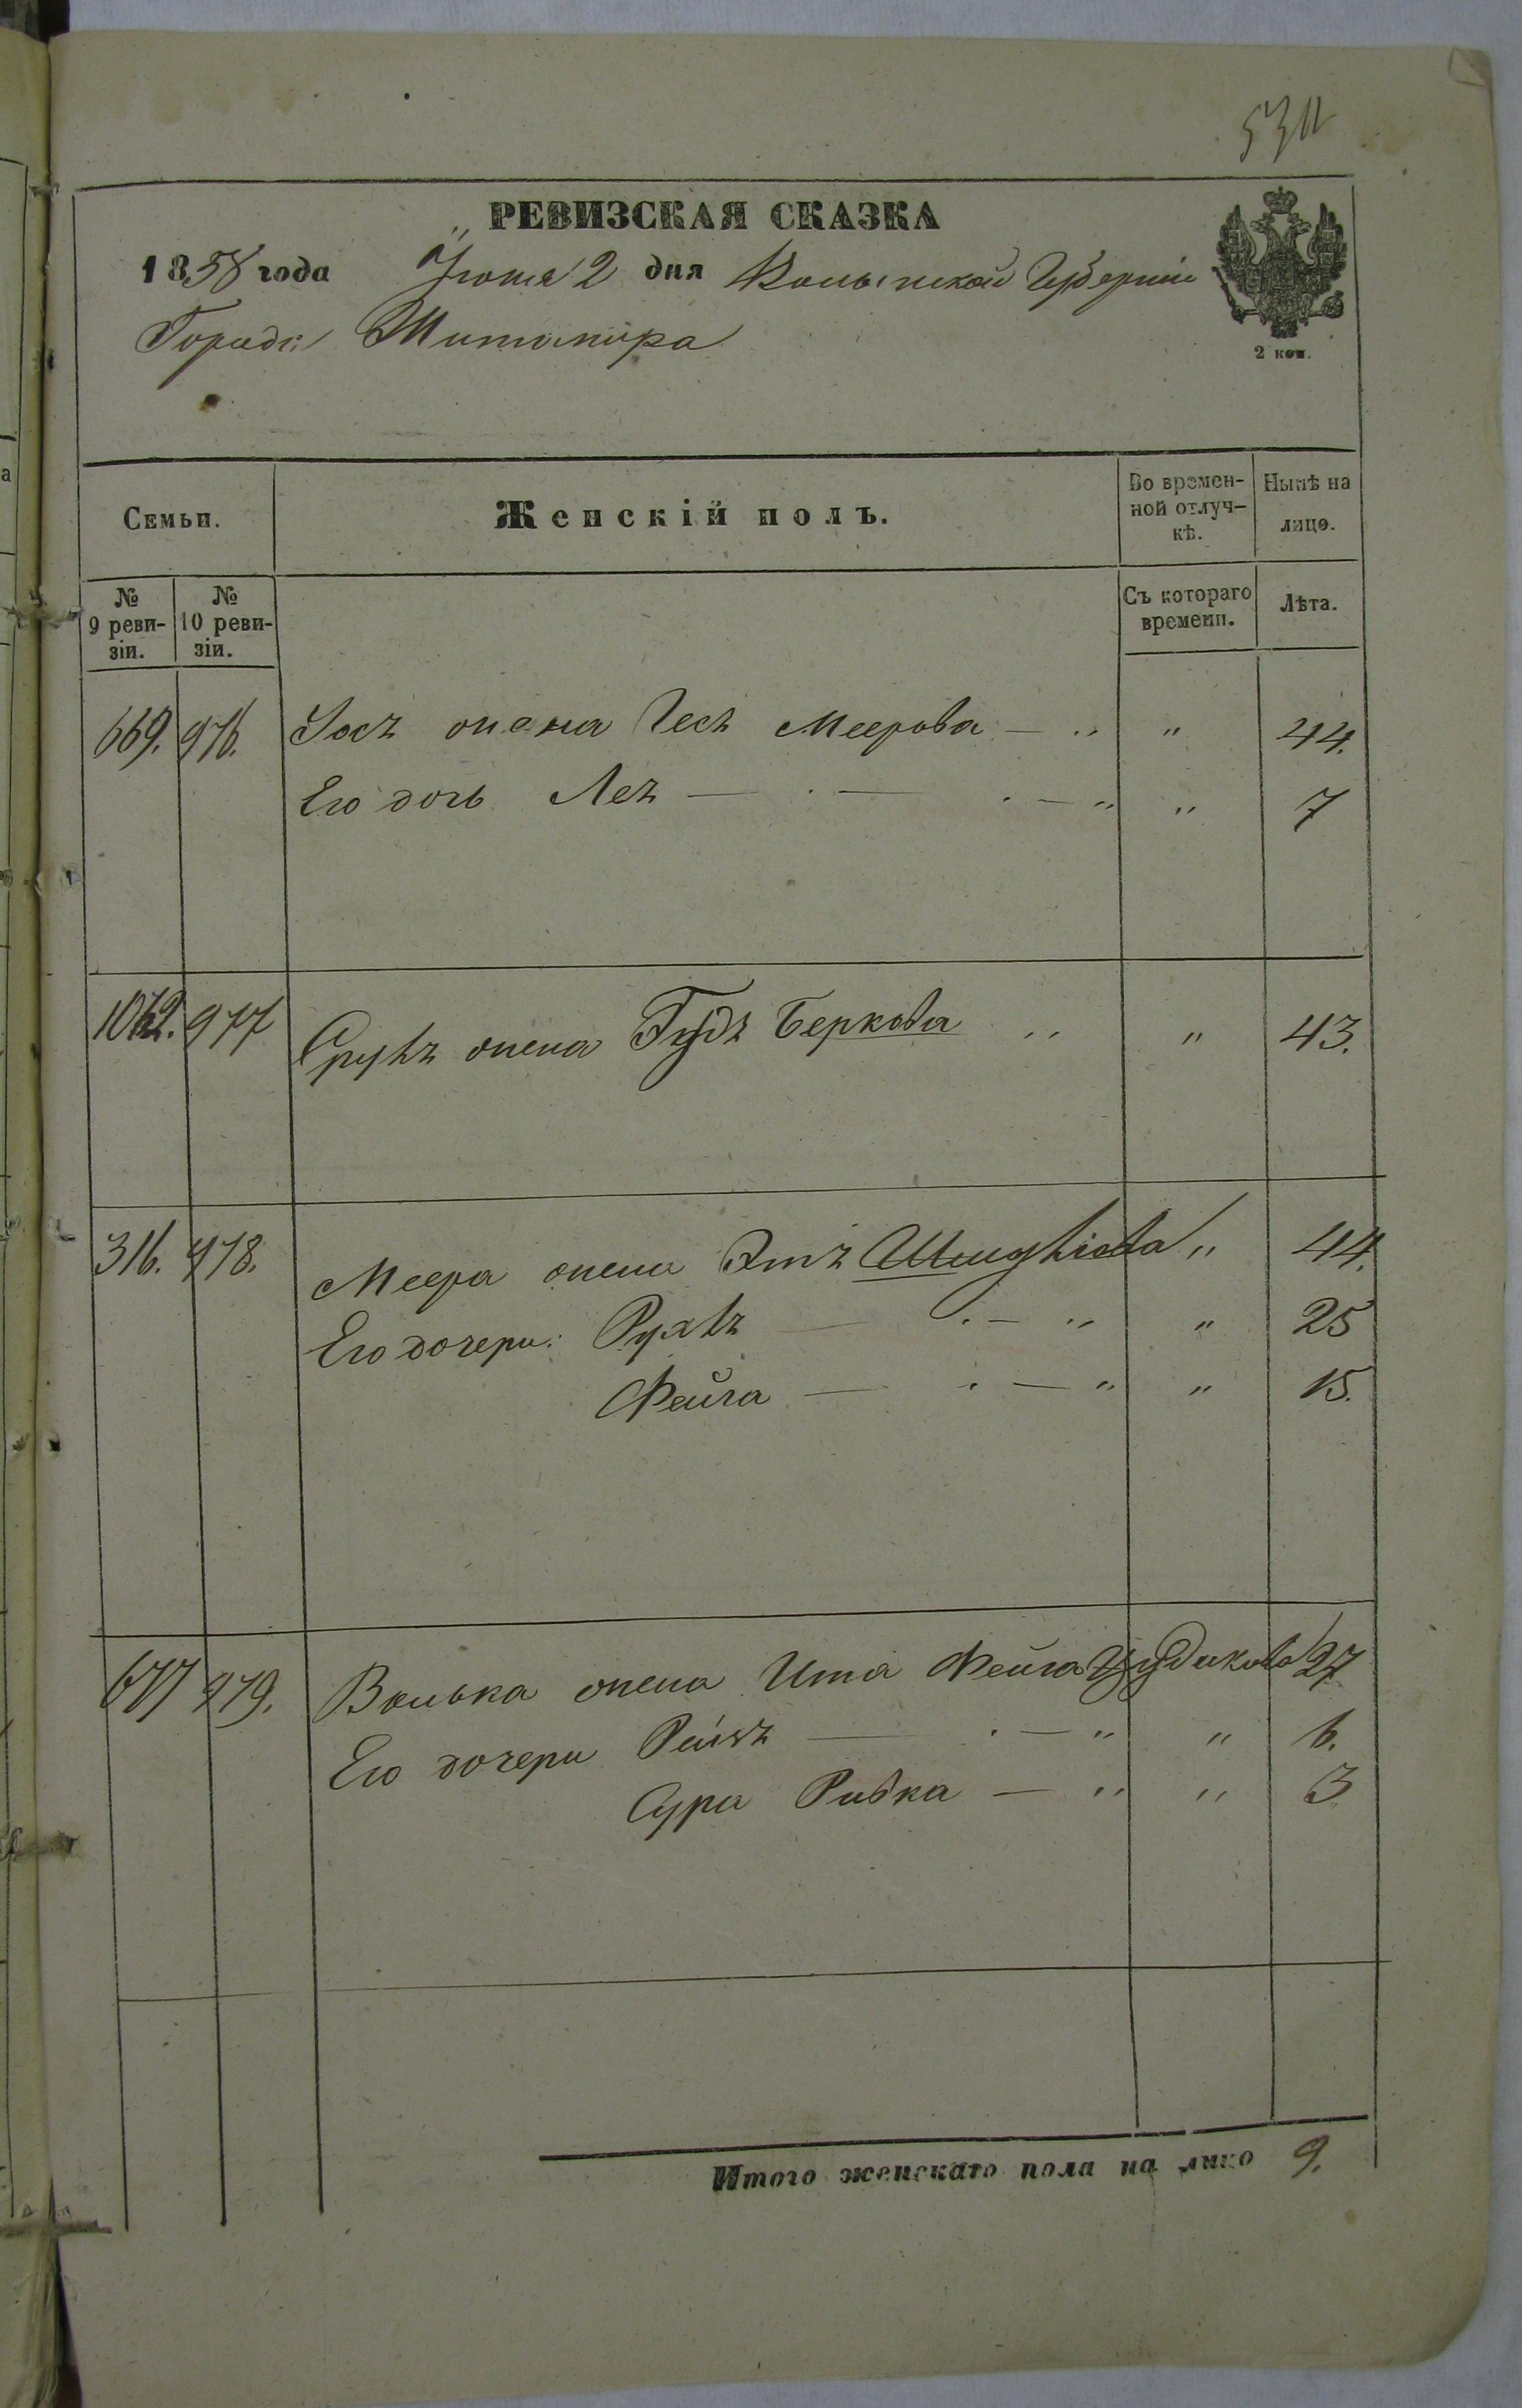 РЕВИЗСКАЯ СКАЗКА
1858 года Іюня 2 дня Волынской Губерніи
Города Житомира
2 коп.
Семьи.
Женскій полъ.
Во времен-
ной отлуч-
кѣ.
Нынѣ на
лицо.
№
9 реви-
зіи.
№
10 реви-
зіи.
Съ котораго
времени.
Лѣта.
669. 976. жена Меерова — " " 44.
Его дочь Лея — " " 7
977 жена Беркова " " 43.
316. 978. Меера жена " 44.
Его дочери: Рухля — " " 25
Фейга — " " 15.
979. Волька жена Ита Фейга 27
Его дочери Рейзя — " " 6.
Сура Ривка — " " 3
Итого женскаго пола на лицо 9.